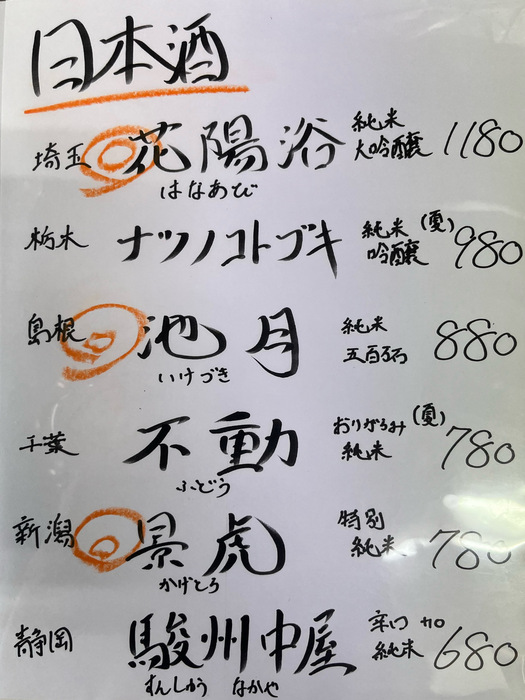 日本酒
埼玉 花陽浴 純米大吟醸 1180
はなあび
栃木 ナツノコトブキ 純米吟醸 (夏) 980
島根 池月 純米五百石 880
いけづき
千葉 不動 おりがらみ純米 (夏) 780
ふどう
新潟 景虎 特別純米 780
かげとら
静岡 駿州中屋 辛口 純米 680
すんしゅう なかや